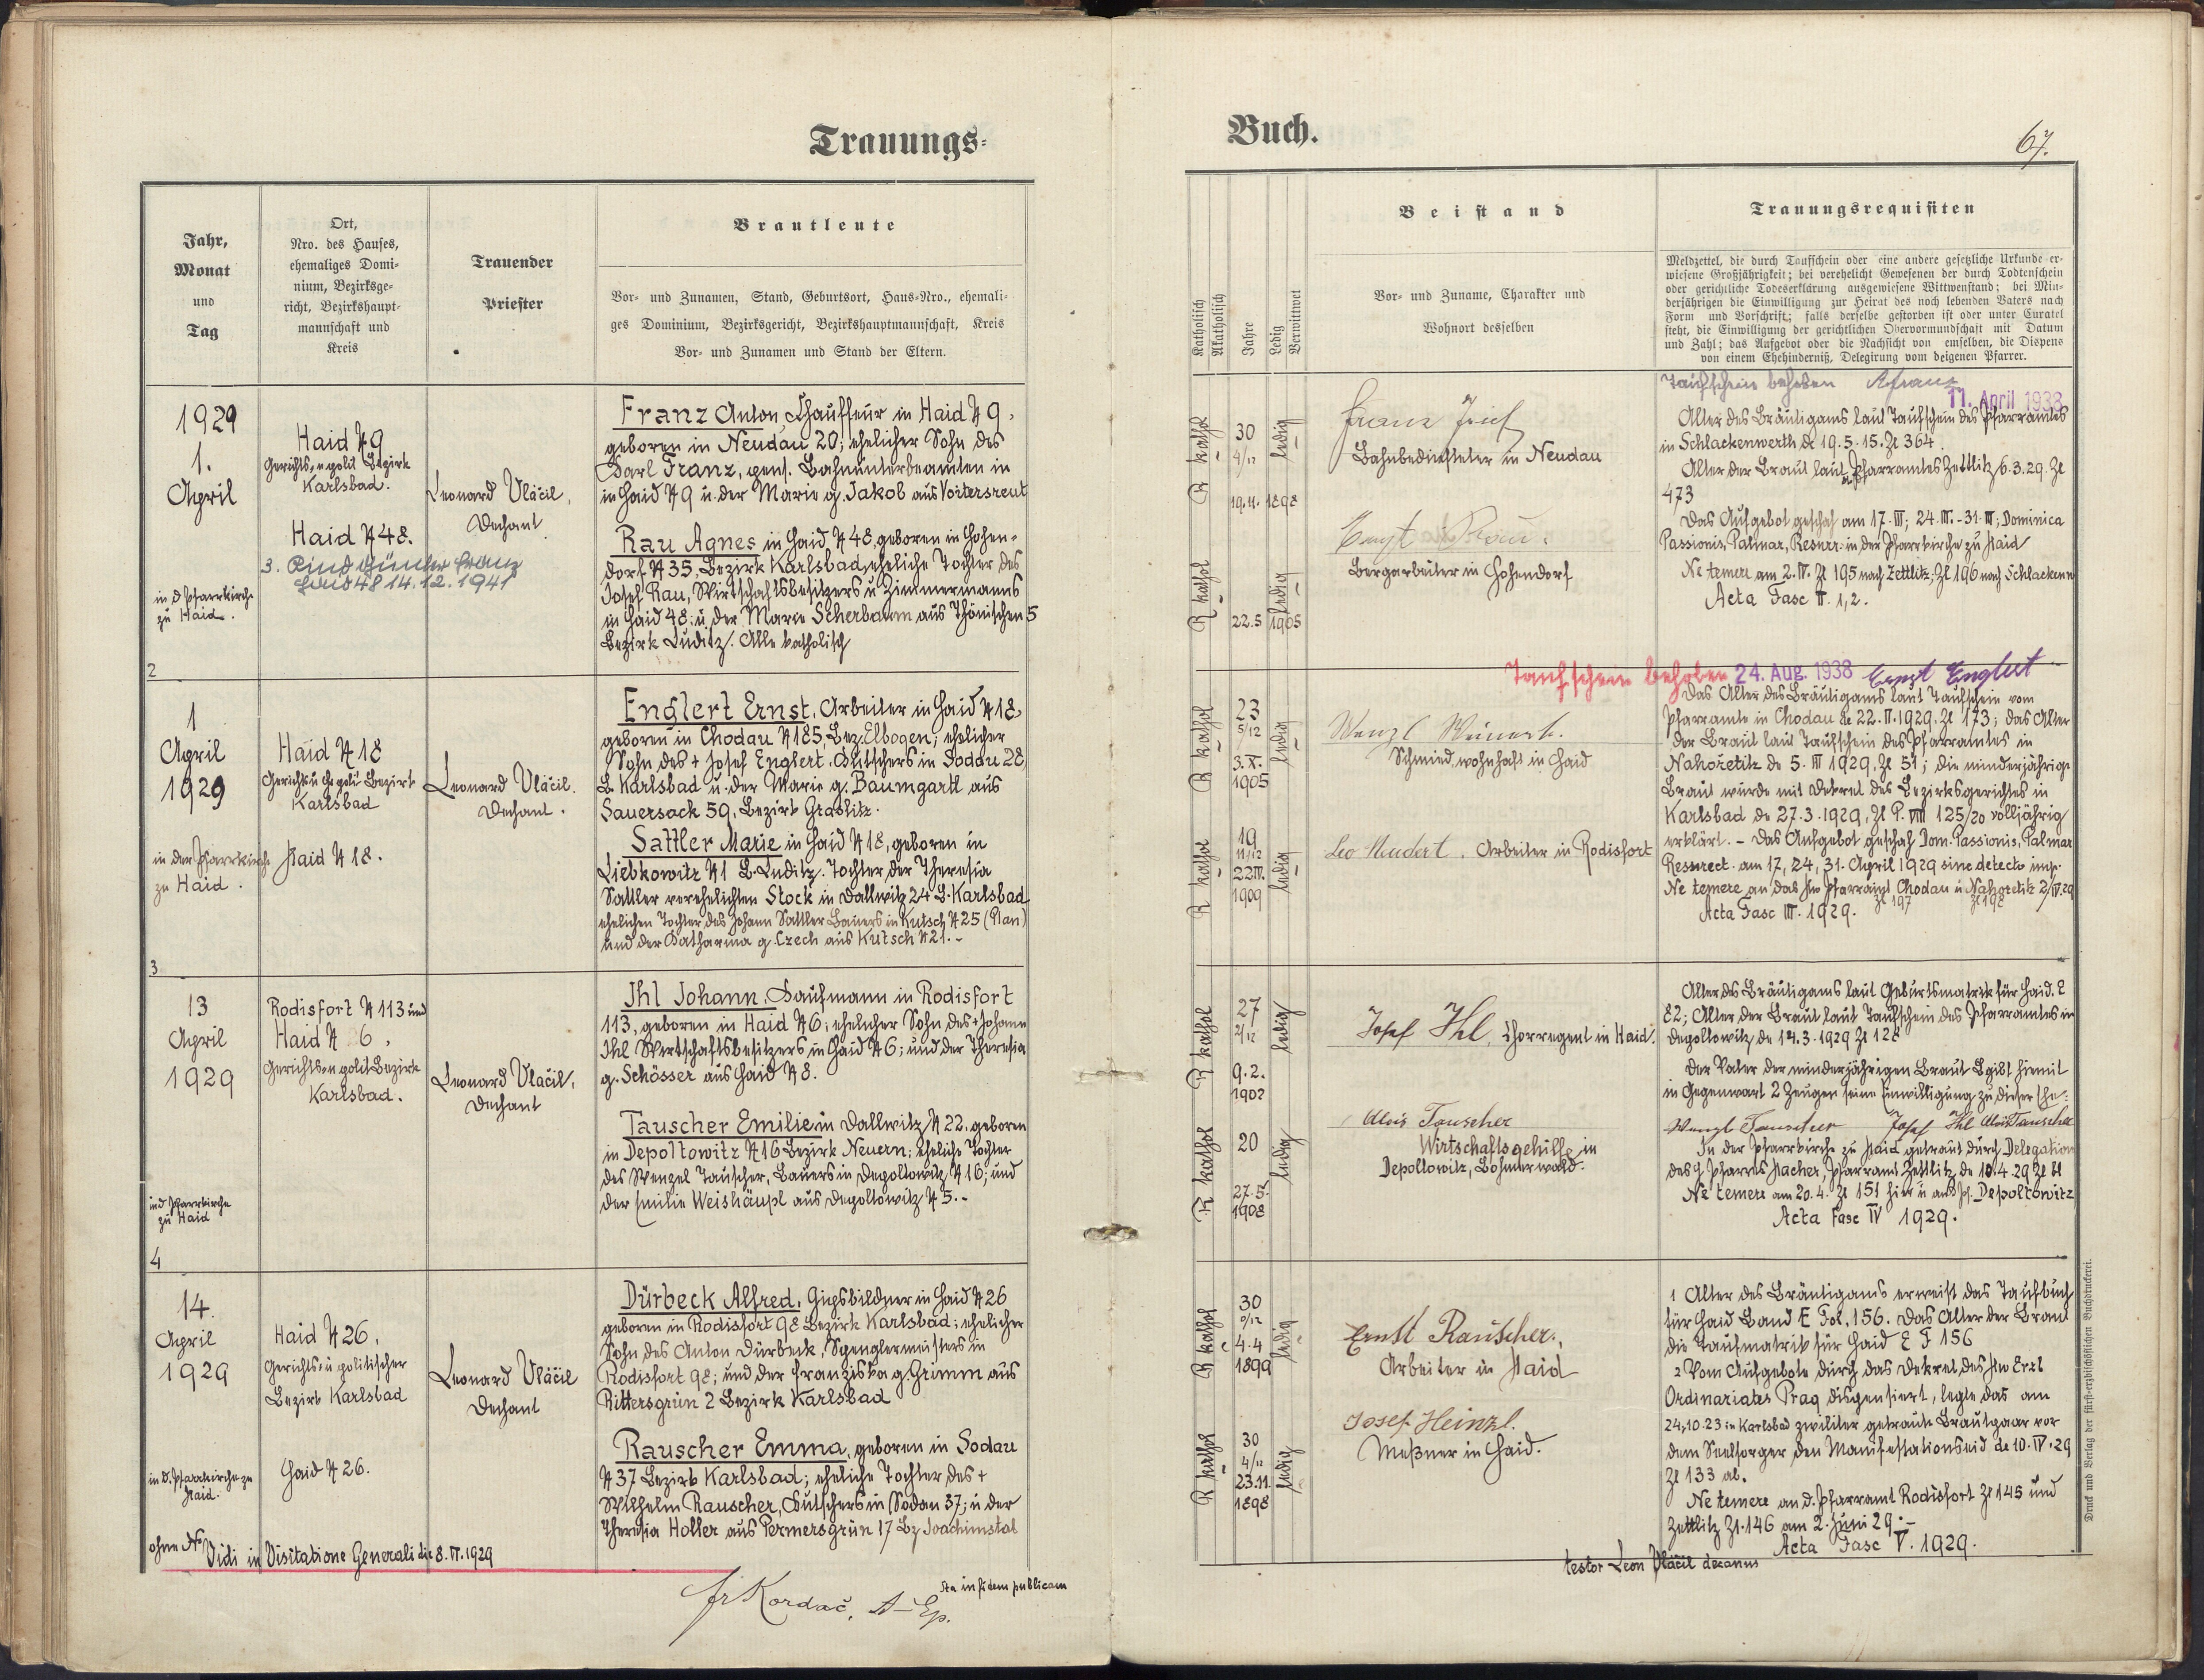 Trauungs-
Jahr,
Monat
und
Tag
Ort,
Nro. des Hauses,
ehemaliges Domi-
nium, Bezirksge-
richt, Bezirkshaupt-
mannschaft und
Kreis
Trauender
Priester
Brautleute
Vor- und Zunamen, Stand, Geburtsort, Haus-Nro., ehemali-
ges Dominium, Bezirksgericht, Bezirkshauptmannschaft, Kreis
Vor- und Zunamen und Stand der Eltern.
1929
1.
April
in d Pfarrkirche
zu Haid.
Haid N 9
Gerichts- u polit Bezirk
Karlsbad.
Haid N 48.
3. Kind Günter Franz
Haid 48 14.12.1941
Leonard Vláčil,
Dechant
Franz Anton, Chauffeur in Haid N 9,
geboren in Neudau 20; ehelicher Sohn des
Karl Franz, pens. Bahnunterbeamten in
in Haid N 9 u. der Marie g. Jakob aus Voitersreut
Rau Agnes in Haid N 48, geboren in Hohen-
dorf N 35, Bezirk Karlsbad, eheliche Tochter des
Josef Rau, Wirtschaftsbesitzers u Zimmermanns
in Haid 48; u der Marie Scherbaum aus Thönischen 5
Bezirk Luditz. Alle katholisch
2
1
April
1929
in der Pfarrkirche
zu Haid.
Haid N 18
Gerichts u polit Bezirk
Karlsbad
Haid N 18.
Leonard Vláčil.
Dechant.
Englert Ernst, Arbeiter in Haid N 18,
geboren in Chodau N 185, Bez. Elbogen; ehelicher
Sohn des + Josef Englert, Kutschers in Soddu 28,
B. Karlsbad u. der Marie g. Baumgartl aus
Sauersack 59, Bezirk Graslitz.
Sattler Marie in Haid N 18, geboren in
Liebkowitz N 1 B. Luditz. Tochter der Theresia
Sattler verehelichten Stock in Dallwitz 24 B. Karlsbad
ehelichen Tochter des Johann Sattler Bauers in Kutsch N 25 (Plan)
und der Katharina g. Czech aus Kutsch N 21. -
3
13
April
1929
in d Pfarrkirche
zu Haid
Rodisfort N 113 und
Haid N 6,
Gerichts- u polit Bezirk
Karlsbad.
Leonard Vláčil,
Dechant
Ihl Johann, Kaufmann in Rodisfort
113, geboren in Haid N 6; ehelicher Sohn des + Johann
Ihl Wirtschaftsbesitzers in Haid N 6; und der Theresia
g. Schösser aus Haid N 8.
Tauscher Emilie in Dallwitz N 22, geboren
in Depoltowitz N 16 Bezirk Neuern; eheliche Tochter
des Wenzel Tauscher, Bauers in Depoltowitz N 16; und
der Emilie Weishäupl aus Depoltowitz N 5. -
4
14.
April
1929
in d. Pfarrkirche zu
Haid.
Haid N 26,
Gerichts- u politischer
Bezirk Karlsbad
Haid N 26.
Leonard Vláčil
Dechant
Dürbeck Alfred, Gipsbildner in Haid N 26
geboren in Rodisfort 98 Bezirk Karlsbad; ehelicher
Sohn des Anton Dürbeck, Spenglermeisters in
Rodisfort 98; und der Franziska g. Grimm aus
Rittersgrün 2 Bezirk Karlsbad
Rauscher Emma, geboren in Sodau
N 37 Bezirk Karlsbad; eheliche Tochter des +
Wilhelm Rauscher, Kutschers in Sodau 37; u der
Theresia Holler aus Permersgrün 17 Bz Joachimstal
ohne No
Vidi in Visitatione Generali die 8. VI. 1929
Sta in fidem publicam
Fr Kordač, A-Ep.
Buch.
67.
Katholisch
Akatholisch
Jahre
Ledig
Verwittwet
Beistand
Vor- und Zuname, Charakter und
Wohnort desselben
Trauungsrequisiten
Meldzettel, die durch Taufschein oder eine andere gesetzliche Urkunde er-
wiesene Großjährigkeit; bei verehelicht Gewesenen der durch Todtenschein
oder gerichtliche Todeserklärung ausgewiesene Wittwenstand; bei Min-
derjährigen die Einwilligung zur Heirat des noch lebenden Vaters nach
Form und Vorschrift; falls derselbe gestorben ist oder unter Curatel
steht, die Einwilligung der gerichtlichen Obervormundschaft mit Datum
und Zahl; das Aufgebot oder die Nachsicht von emselben, die Dispens
von einem Ehehinderniß, Delegirung vom deigenen Pfarrer.
R kathol
30
4/12
19.11.1898
ledig
R kathol
22.5 1905
ledig
Franz Josef
Bahnbediensteter in Neudau
Bergarbeiter in Hohendorf
Taufschein behoben
11. April 1938
Alter des Bräutigams laut Taufschein des Pfarramtes
in Schlackenwerth de 19.5.15. Zl 364.
Alter der Braut laut Pfarramtes Zettlitz 6.3.29. Zl
473
Das Aufgebot geschah am 17. III; 24. III. - 31. III; Dominica
Passionis, Palmar, Resurr: in der Pfarrkirche zu Haid
Ne temere am 2. IV. Zl 195 nach Zettlitz; Zl 196 nach Schlackenw
Acta Fasc II. 1,2.
R kathol
23
5/12
3. X.
1905
ledig
R kathol
19
11/12
22 IV.
1909
ledig
Schmied, wohnhaft in Haid
Leo Neudert, Arbeiter in Rodisfort
Taufschein behoben 24. Aug. 1938 Ernst Englert
Das Alter des Bräutigams laut Taufschein vom
Pfarramte in Chodau de 22. II. 1929. Zl 173; das Alter
der Braut laut Taufschein des Pfarramtes in
Nahořetitz de 5. III 1929, Zl 51; die minderjährige
Braut wurde mit Dekret des Bezirksgerichtes in
Karlsbad de 27.3.1929, Zl P. VIII 125/20 volljährig
erklärt. - Das Aufgebot geschah Dom. Passionis, Palmar
Resurrect. am 17, 24, 31. April 1929 sine detecto imp.
Ne temere an das hw Pfarramt Chodau u Nahoretitz 2/IV. 29
Zl 197 Zl 198
Acta Fasc III. 1929.
R kathol
27
2/12
9.2.
1902
ledig
R kathol
20
27.5.
1908
ledig
Josef Ihl, Chorregent in Haid.
Alois Tauscher
Wirtschaftsgehilfe in
Depoltowitz, Böhmerwald.
Alter des Bräutigams laut Geburtsmatrik für Haid. E
82; Alter der Braut laut Taufschein des Pfarramtes in
Depoltowitz de 14.3.1929 Zl 128
Der Vater der minderjährigen Braut gibt hiemit
in Gegenwart 2 Zeugen seine Einwilligung zu dieser Ehe:
Wenzl Tauscher Josef Ihl Alois Tauscher
In der Pfarrkirche zu Haid getraut durch Delegation
des H Pfarres Hacher, Pfarramt Zettlitz, de 10.4.29 Zl
Ne temere am 20.4. Zl 151 hier u an d Pf. Depoltowitz
Acta Fasc IV 1929.
R kathol
30
0/12
4.4
1899
ledig
R kathol
30
4/12
23.11.
1898
ledig
Ernst Rauscher,
Arbeiter in Haid
Josef Heinzl.
Meßner in Haid.
1 Alter des Bräutigams erweist das Taufbuch
für Haid Band E Fol. 156. Das Alter der Braut
die Taufmatrik für Haid E F 156
2 Vom Aufgebote durch das Dekret des Hw Erzb
Ordinariates Prag dispensiert, legte das am
24,10.23 in Karlsbad zwiliter getraute Brautpaar vor
dem Seelsorger den Manifestationseid de 10. IV. 29
Zl 133 ab.
Ne temere an d. Pfarramt Rodisfort Zl 145 und
Zettlitz Zl. 146 am 2. Juni 29. -
Acta Fasc V. 1929.
testor Leon Vláčil decanus
Druck und Verlag der fürst-erzbischöflichen Buchdruckerei.